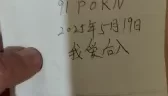 91 PORN
2025年5月19日
我爱肏入